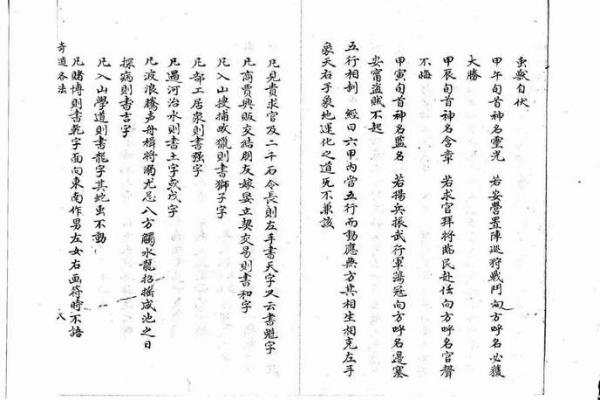 虫獸自伏
甲午旬首神名靈光 若安營置陣巡狩戰鬥向方呼名必獲
大勝
甲辰旬首神名含章 若求官拜將臨民赴任向方呼名官聲
不悔
甲寅旬首神名監名 若揚兵振武行軍蕩寇向方呼名邊塞
安甯盜賊不起
五行相制 經曰六甲內當五行而動應無方其相生相克左手
象天右手象地運化之道死不兼該
凡見貴求官及二千石令長則左手書天字又云書魁字
凡商賈興販交結朋友嫁娶立契交易則書和字
凡入山搜捕畋獵則書獅子字
凡部工居家則書強字
凡過河治水則書土字或戊字
凡波浪騰声舟楫將溺尤忌八方觸水龍招搖咸池之日
探病則書吉字
凡入山學道則書龍字其蛇虫不動
凡賭博則書乾字面向東南作男左女右画符時不語
奇道各法
八